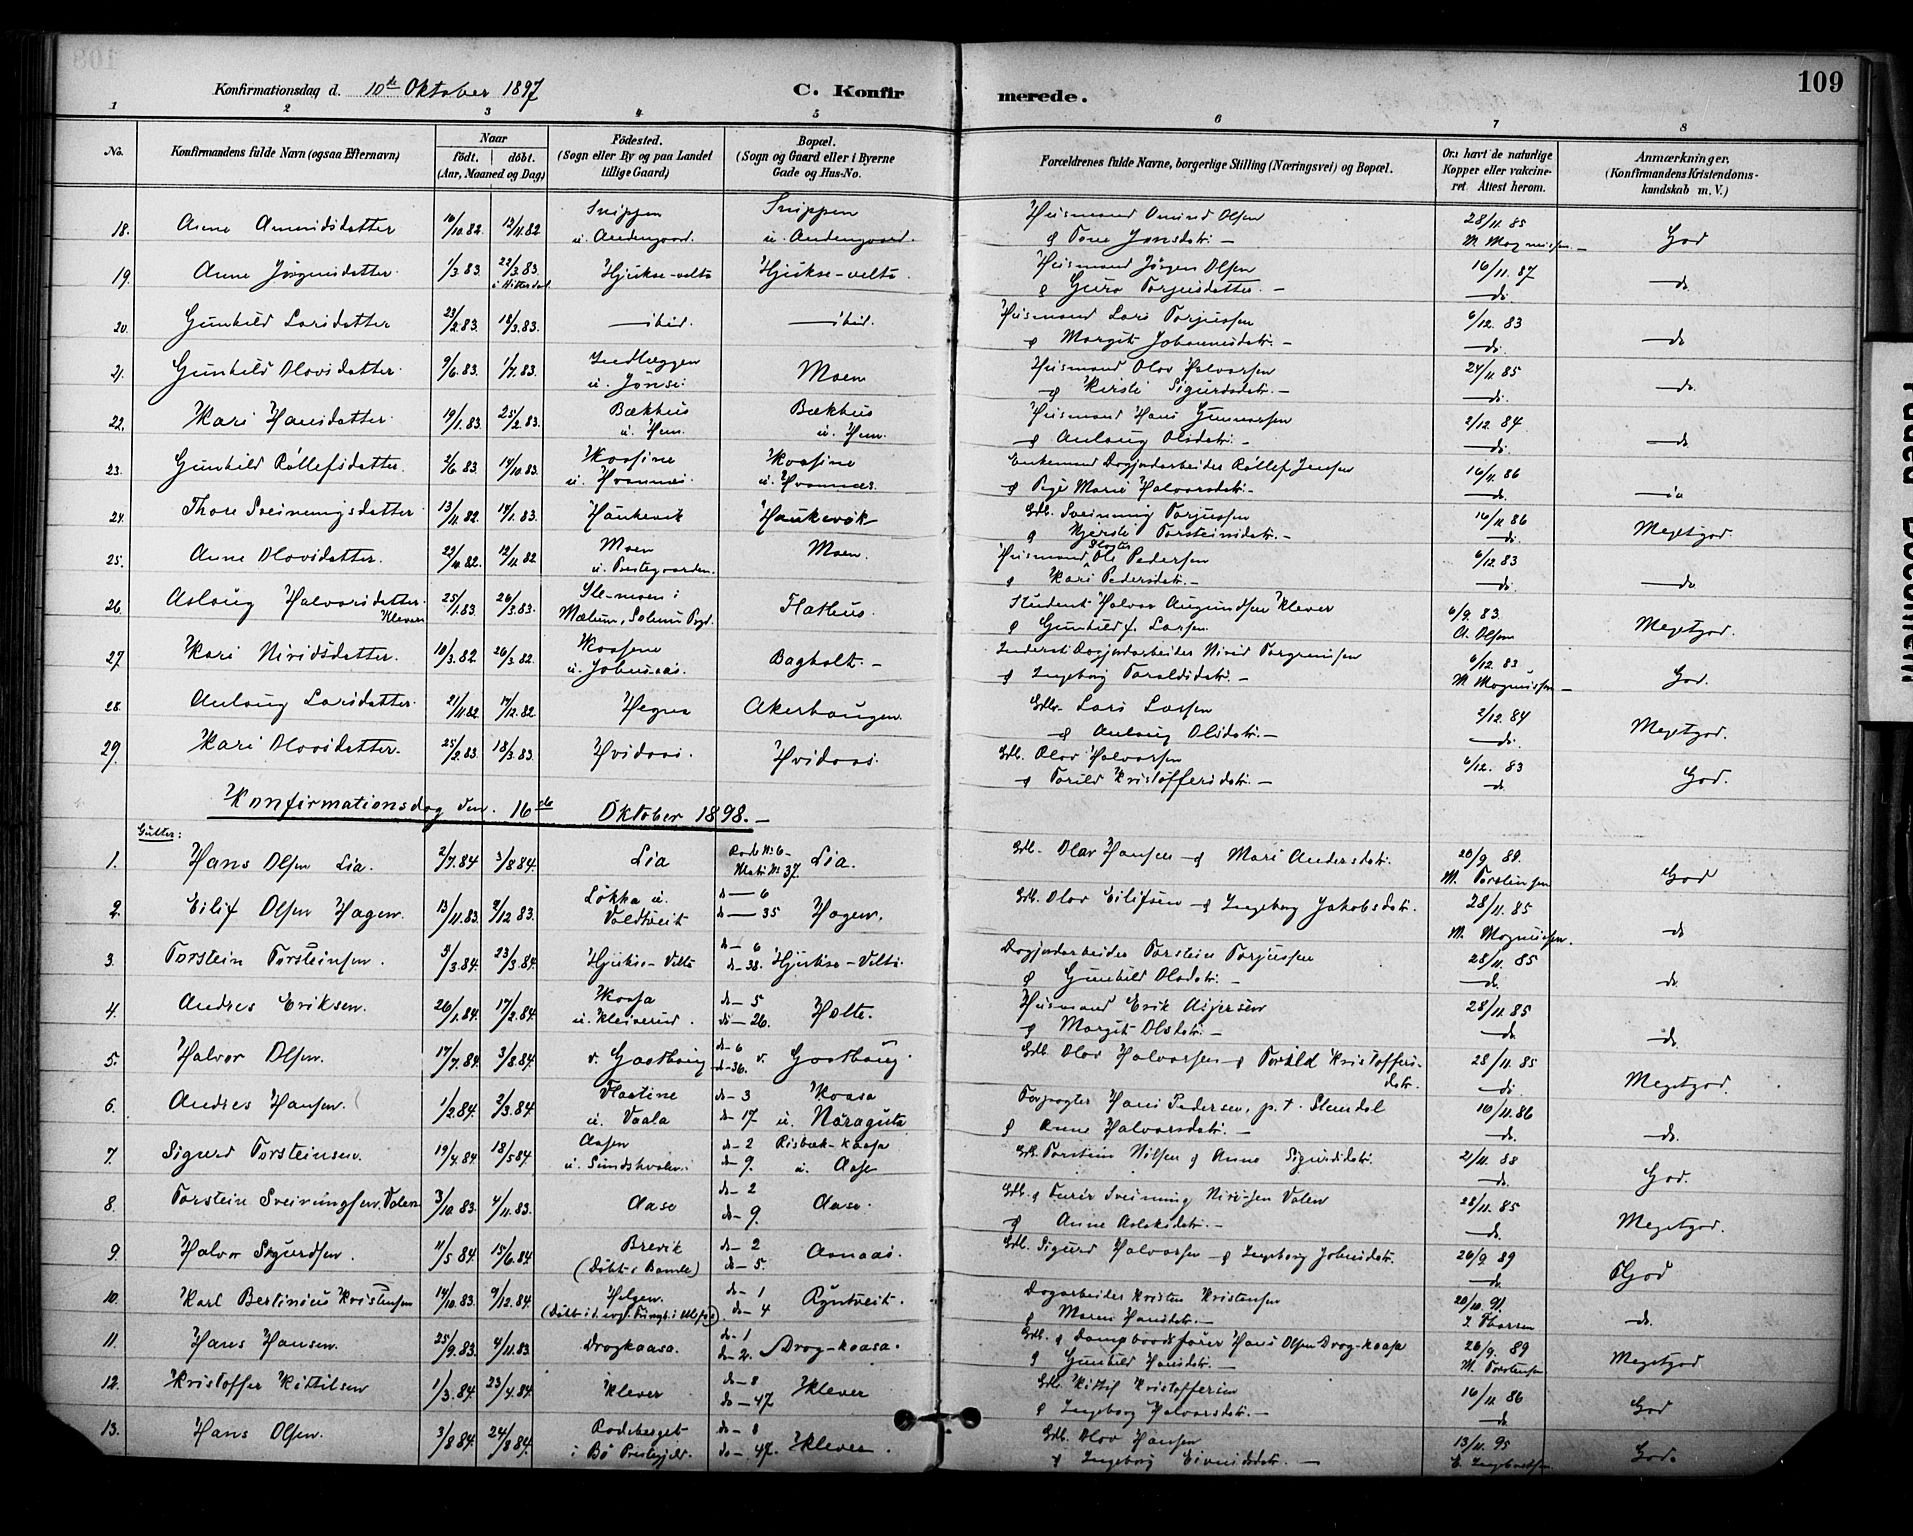 109
Konfirmationsdag d. 10de Oktober 1897
C. Konfirmerede.
1 2 3 4 5 6 7 8
No. Konfirmandens fulde Navn (ogsaa Efternavn) Naar født. døbt. (Aar, Maaned og Dag) Fødested. (Sogn eller By og paa Landet tillige Gaard) Bopæl. (Sogn og Gaard eller i Byerne Gade og Hus-No. Forældrenes fulde Navne, borgerlige Stilling (Næringsvei) og Bopæl. Om havt de naturlige Kopper eller vaccineret. Attest herom. Anmærkninger. (Konfirmandens Kristendomskundskab m. V.)
18. Anne Amundsdatter 16/10.82. 12/11.82 Snippen u. Andengaard. Snippen u. Andengaard. Husmand Amund Olsen & Tone Jonsdatr. — 28/11.85 M. Magnussen — God
19. Anne Jørgensdatter. 1/3.83. 22/3.83. i Hitterdal Hjukse-velta Hjukse-velta. Husmand Jørgen Olsen & Guro Torjusdatter. — 16/11.87 —do. —do
20. Gunhild Larsdatter 23/2.83. 18/3.83. —ibid. —ibid. Husmand Lars Torjussen & Margit Johannesdatr. — 6/12.83 —do. —do
21. Gunhild Olavsdatter. 9/6.83. 1/7.83. u. Jønsi. Moen Husmand Olav Halvorsen & Kirsti Sigurdsdatr. — 24/11.85 —do. —do
22. Kari Hansdatter. 19/1.83. 25/2.83. Bækhus u. Hem. Bækhus u. Hem. Husmand Hans Gunnarsen & Aulaug Olsdatr. — 2/12.84 —do. —do
23. Gunhild Rollefsdatter. 2/6.83 14/10.83. Kaasine u. Hvannes. Kaasine u. Hvannes. Enkemand Dagarbeider Rollef Jensen & Marie Halvorsdatr. — 16/11.86 —do.
24. Thore Sveinungsdatter. 13/11.82. 14/1.83. Haukevik Haukevik Gdb. Sveinung Torjussen & Kjersti Torsteinsdatr. — 16/11.86 —do. Megetgod.
25. Anne Olavsdatter. 22/10.82. 12/11.82 Moen u. Prestegaarden. Moen. Husmand Ole Pedersen & Kari Pedersdatr. — 6/12.83 —do. —do
26. Aslaug Halvorsdatter Klever 25/1.83. 26/3.83. Mælum, Solum Prgd. Flathus. Student Halvor Augundsen Klever & Gunhild f. Larsen. 6/9.83. A. Olsen Megetgod.
27. Kari Niridsdatter. 10/3.82. 26/3.82. Kaasene u. Johnsaas. Bagholt. — Inderst Dagarbeider Nirid Torgrimsen & Ingeborg Taraldsdatr. — 6/12.83 M. Magnussen — God.
28. Aulaug Larsdatter. 21/11.82 17/12.82. Hegna Akerhaugen. Gdb. Lars Larsen & Aulaug Olsdatr. — 2/12.84 —do. Megetgod.
29. Kari Olavsdatter. 25/2.83 18/3.83. Hvidaas. Hvidaas. Gdb. Olav Halvorsen & Torild Kristoffersdatr. — 6/12.83 —do. God.
Konfirmationsdag den. 16de Oktober 1898. —
Gutter:
1. Hans Olsen Lia. 2/7.84 3/8.84. Lia Rode No 6 – Matr. No 37. Lia. Gdb. Olav Hansen & Mari Andersdatr. 20/9.89. M. Torstensen God
2. Eilif Olsen Hagen. 13/11.83. 9/12.83. Løkka u. Valdtveit do— 6 do— 35 Hagen. Gdb. Olav Eilifsen & Ingeborg Jakobsdatr. 28/11.85 M. Magnussen. —do
3. Torstein Torsteinsen. 3/3.84. 23/3.84. Hjukse-Velta do— 6 do— 38. Hjukse-Velta. Dagarbeider Torstein Torjussen & Gunhild Olsdatr. — 28/11.85 —do. —do.
4. Andres Eriksen. 26/1.84. 17/2.84. Kaasa u. Kleiverud. do— 5 do— 26. Holte. Husmand Erik Asjersen & Margit Olsdatr. — 28/11.85 —do. —do.
5. Halvor Olsen. 17/7.84. 3/8.84. v. Gaathaug do— 6 do— 36. v. Gaathaug. Gdb. Olav Halvorsen & Torild Kristoffersdatr. 28/11.85 —do. Megetgod.
6. Andres Hansen. 1/2.84. 2/3.84. Flaatine u. Vaala do— 3 do— 17 Kaasa u. Næraguta Hans Pedersen, p.t. Slemdal & Anne Halvorsdatr. — 10/11.86 —do. —do.
7. Sigurd Torsteinsen. 19/4.84. 18/5.84. Aasen u. Sundskvalen. do— 2 do— 9. Risbæk-kaasa u. Aase Gdb. Torstein Nilsen & Anne Sigurdsdatr. 2/11.88 —do. God.
8. Torstein Sveinungsen Valen 3/10.83. 4/11.83. Aase do— 2 do— 9. Aase. Gdb. & Furér Sveinung Nirisen Valen & Anne Aslaksdatr. — 28/11.85 —do. Megetgod.
9. Halvor Sigurdsen. 11/5.84. 15/6.84. Brevik (Døbt i Bamle) do— 2 do— 5. Asnaas. Gdb. Sigurd Halvorsen & Ingeborg Johnsdatr. 26/9.89 —do. God
10. Karl Bertinius Kristensen 14/10.83. 9/12.84. Helgen. do— 1 do— 4 Ryntveit. Dagarbeider Kristen Kristensen & Maren Hansdatr. — 20/10.91. I. Thorsen —do.
11. Hans Hansen. 25/9.83. 4/11.83. Dragkaasa. do— 1 do— 2. Drag-kaasa. Gdb. & Dampbaadsfører Hans Olsen Drag-kaasa & Gunhild Hansdatr. — 26/9.89 M. Torstensen Megetgod
12. Kristoffer Kittilsen 1/3.84. 23/4.84. Klever do— 8 do— 47 Klever Gdb. Kittil Kristoffersen & Ingeborg Halvorsdatr. — 16/11.86 —do. God
13. Hans Olsen. 3/8.84. 24/8.84. Rodeberget i Bø Prestegjeld. do— 8 do— 47. Klever. Gdb. Olav Hansen & Ingeborg Eivindsdatr. — 13/11.95 E. Ingebretsen. God.